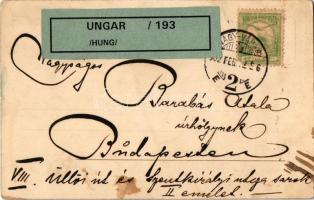 UNGAR / 193
/HUNG/
NAGY-VÁRAD
2
Nagyságos
Barabás Atala
úrhölgynek
Budapesten
VIII. Üllői út és Szentkirályi utcza sarok
II emelet.